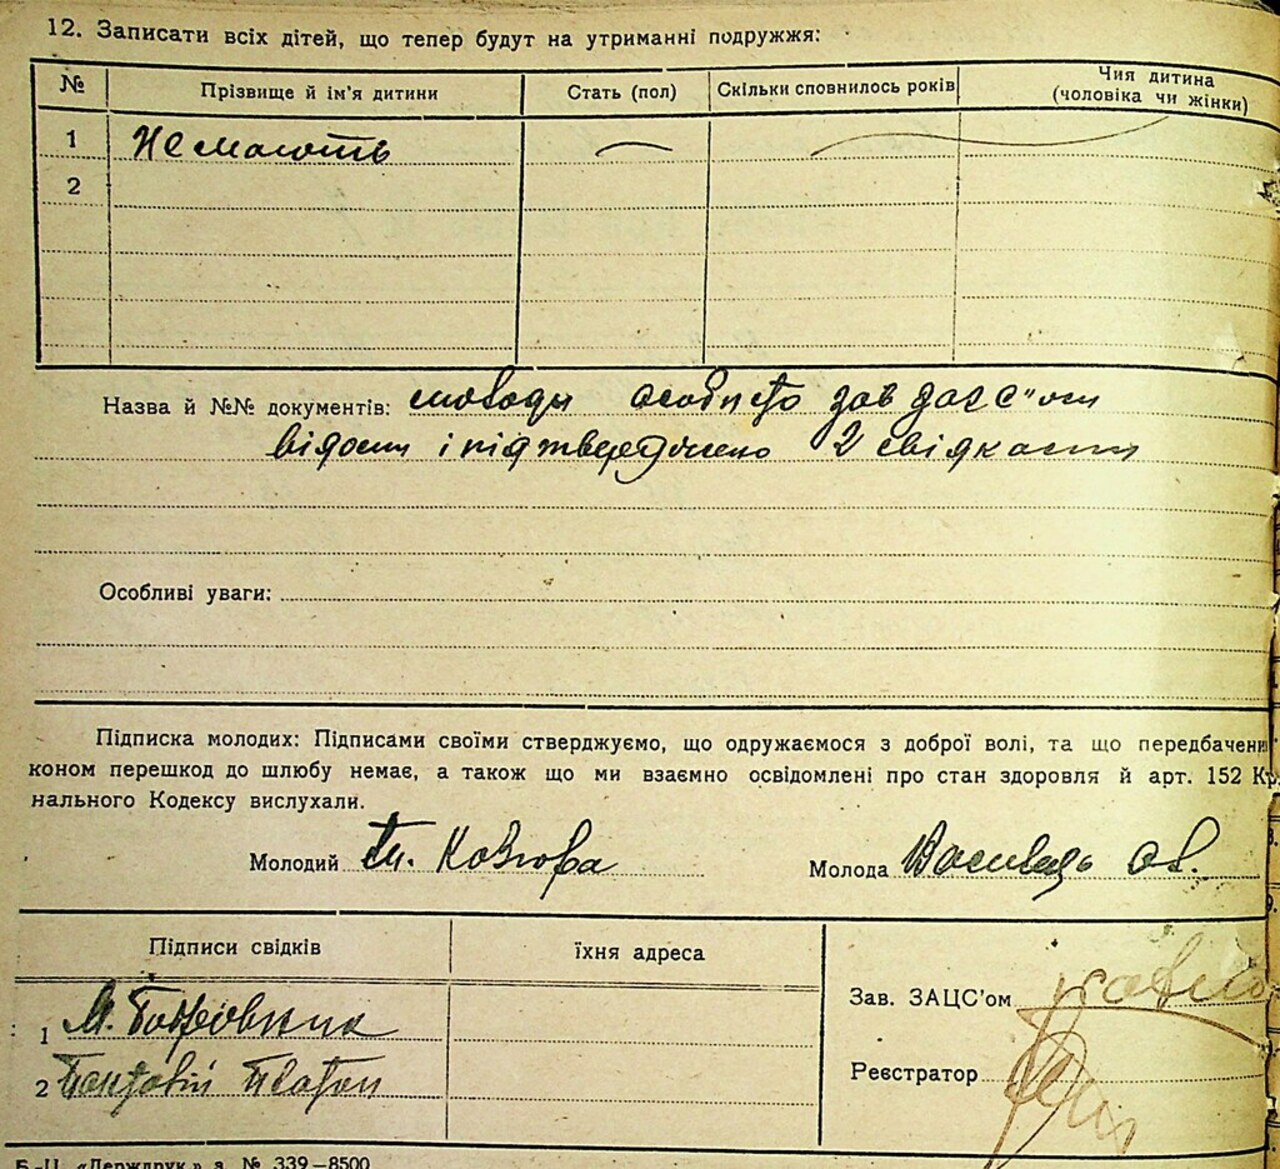 12. Записати всіх дітей, що тепер будут на утриманні подружжя:
№ Прізвище й ім'я дитини Стать (пол) Скільки сповнилось років Чия дитина (чоловіка чи жінки)
1 Не мають
2
Назва й №№ документів: молоди особисто зав загс"ом
відоми і підтверджено 2 свідками
Особливі уваги:
Підписка молодих: Підписами своїми стверджуємо, що одружаємося з доброї волі, та що передбачени
коном перешкод до шлюбу немає, а також що ми взаємно освідомлені про стан здоровля й арт. 152 Кр
нального Кодексу вислухали.
Молодий Молода
Підписи свідків їхня адреса
Зав. ЗАЦС'ом
1 М.
2 Платон
Реєстратор
Б.-Ц. «Держдрук» з. № 339—8500